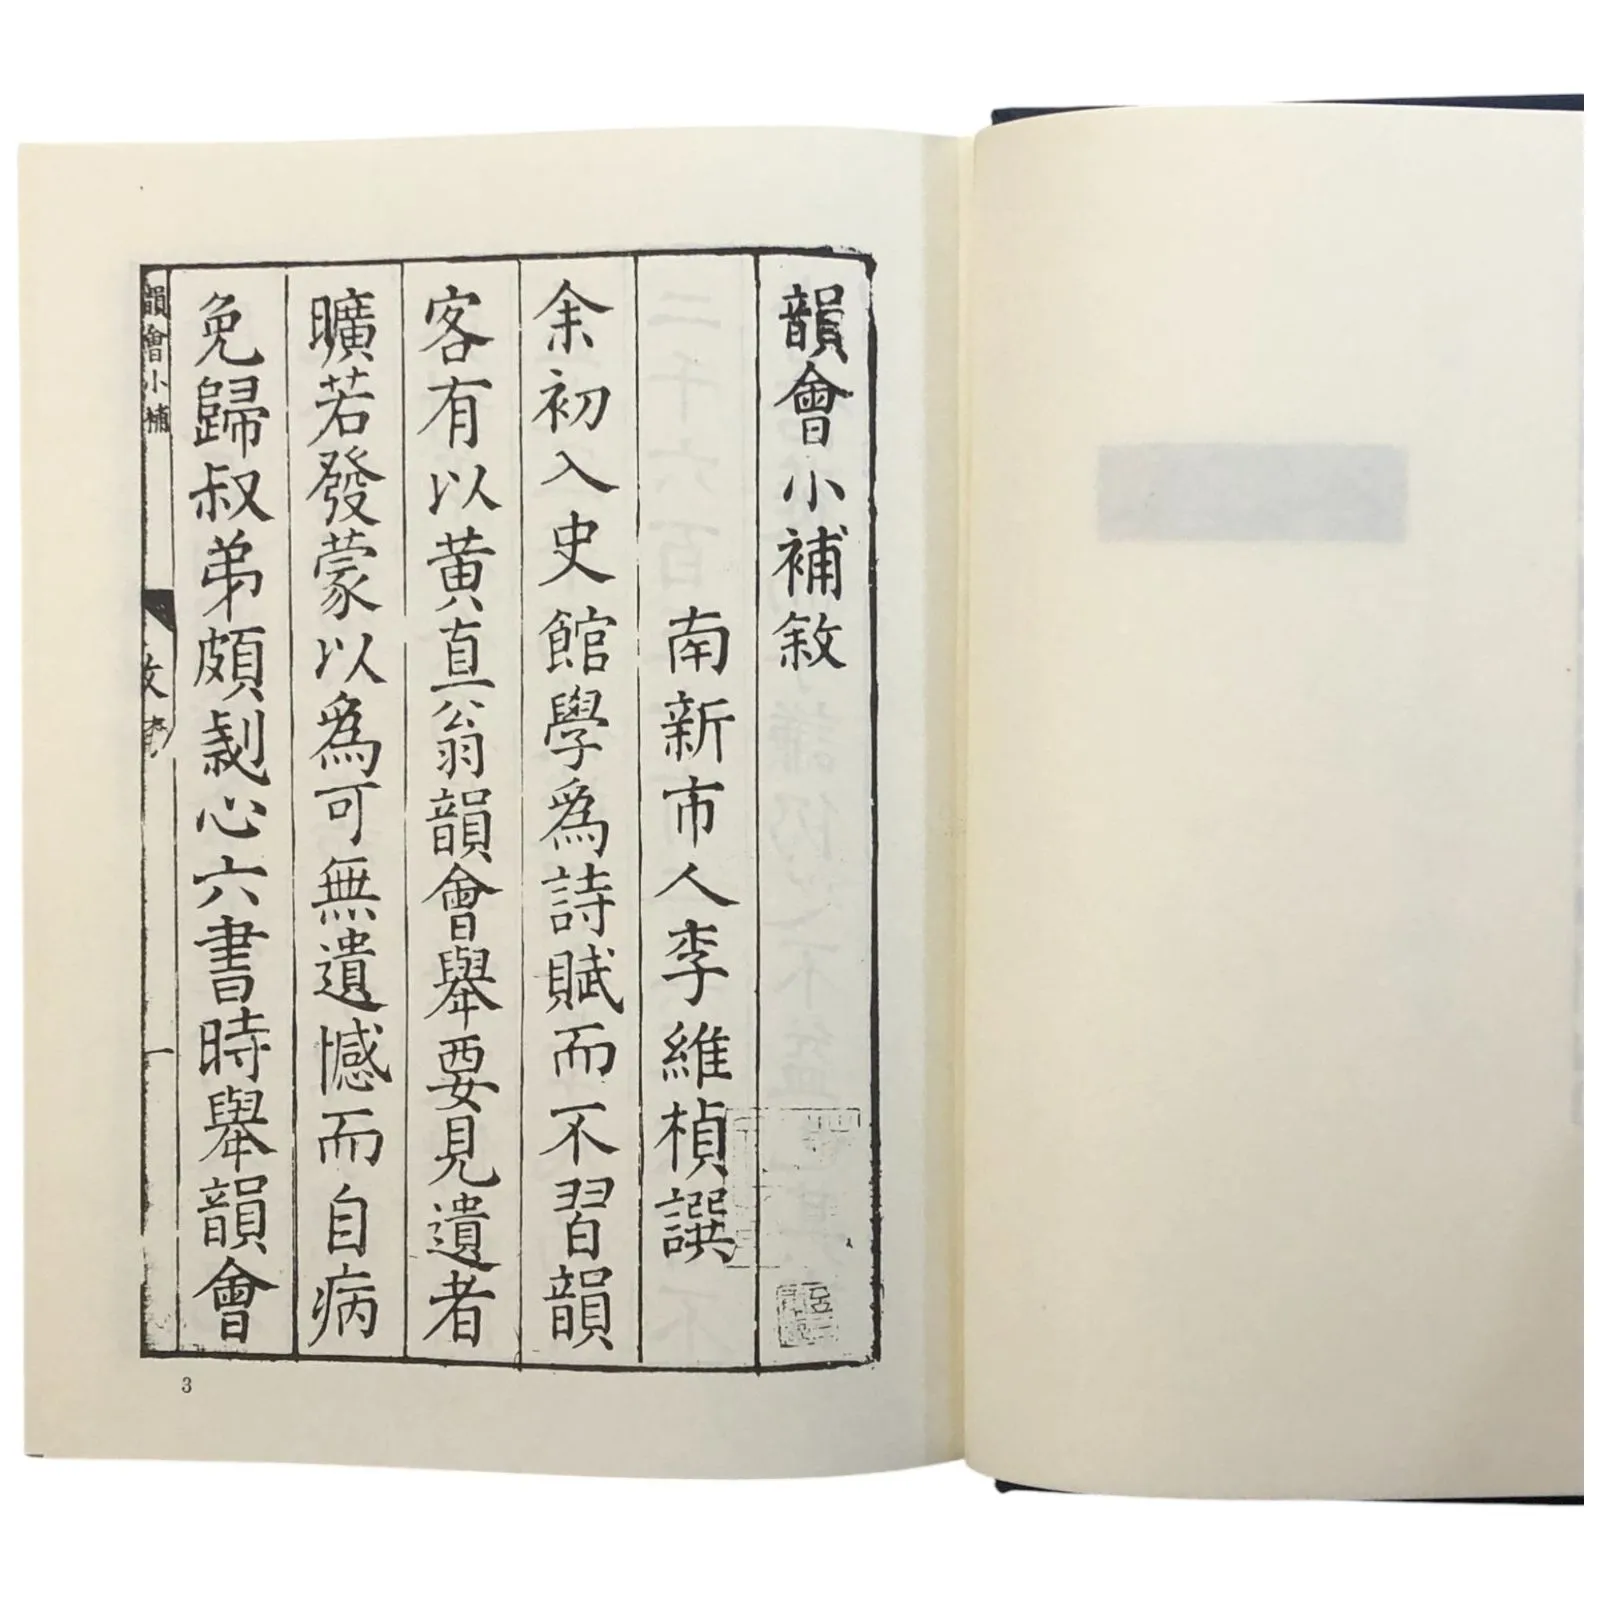 韻會小補敘
南新市人李維楨譔
余初入史館學爲詩賦而不習韻
客有以黄直翁韻會舉要見遺者
曠若發蒙以爲可無遺憾而自病
免歸叔弟頗剗心六書時舉韻會
韻會小補
一
3